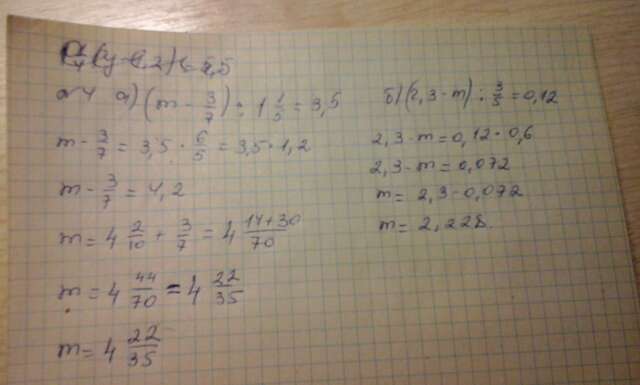 а) (m - 3/7) : 1 1/5 = 3,5
m - 3/7 = 3,5 · 6/5 = 3,5 · 1,2
m - 3/7 = 4,2
m = 4 2/10 + 3/7 = 4 14+30/70
m = 4 44/70 = 4 22/35
m = 4 22/35
б) (2,3 - m) : 3/5 = 0,12
2,3 - m = 0,12 · 0,6
2,3 - m = 0,072
m = 2,3 - 0,072
m = 2,228.